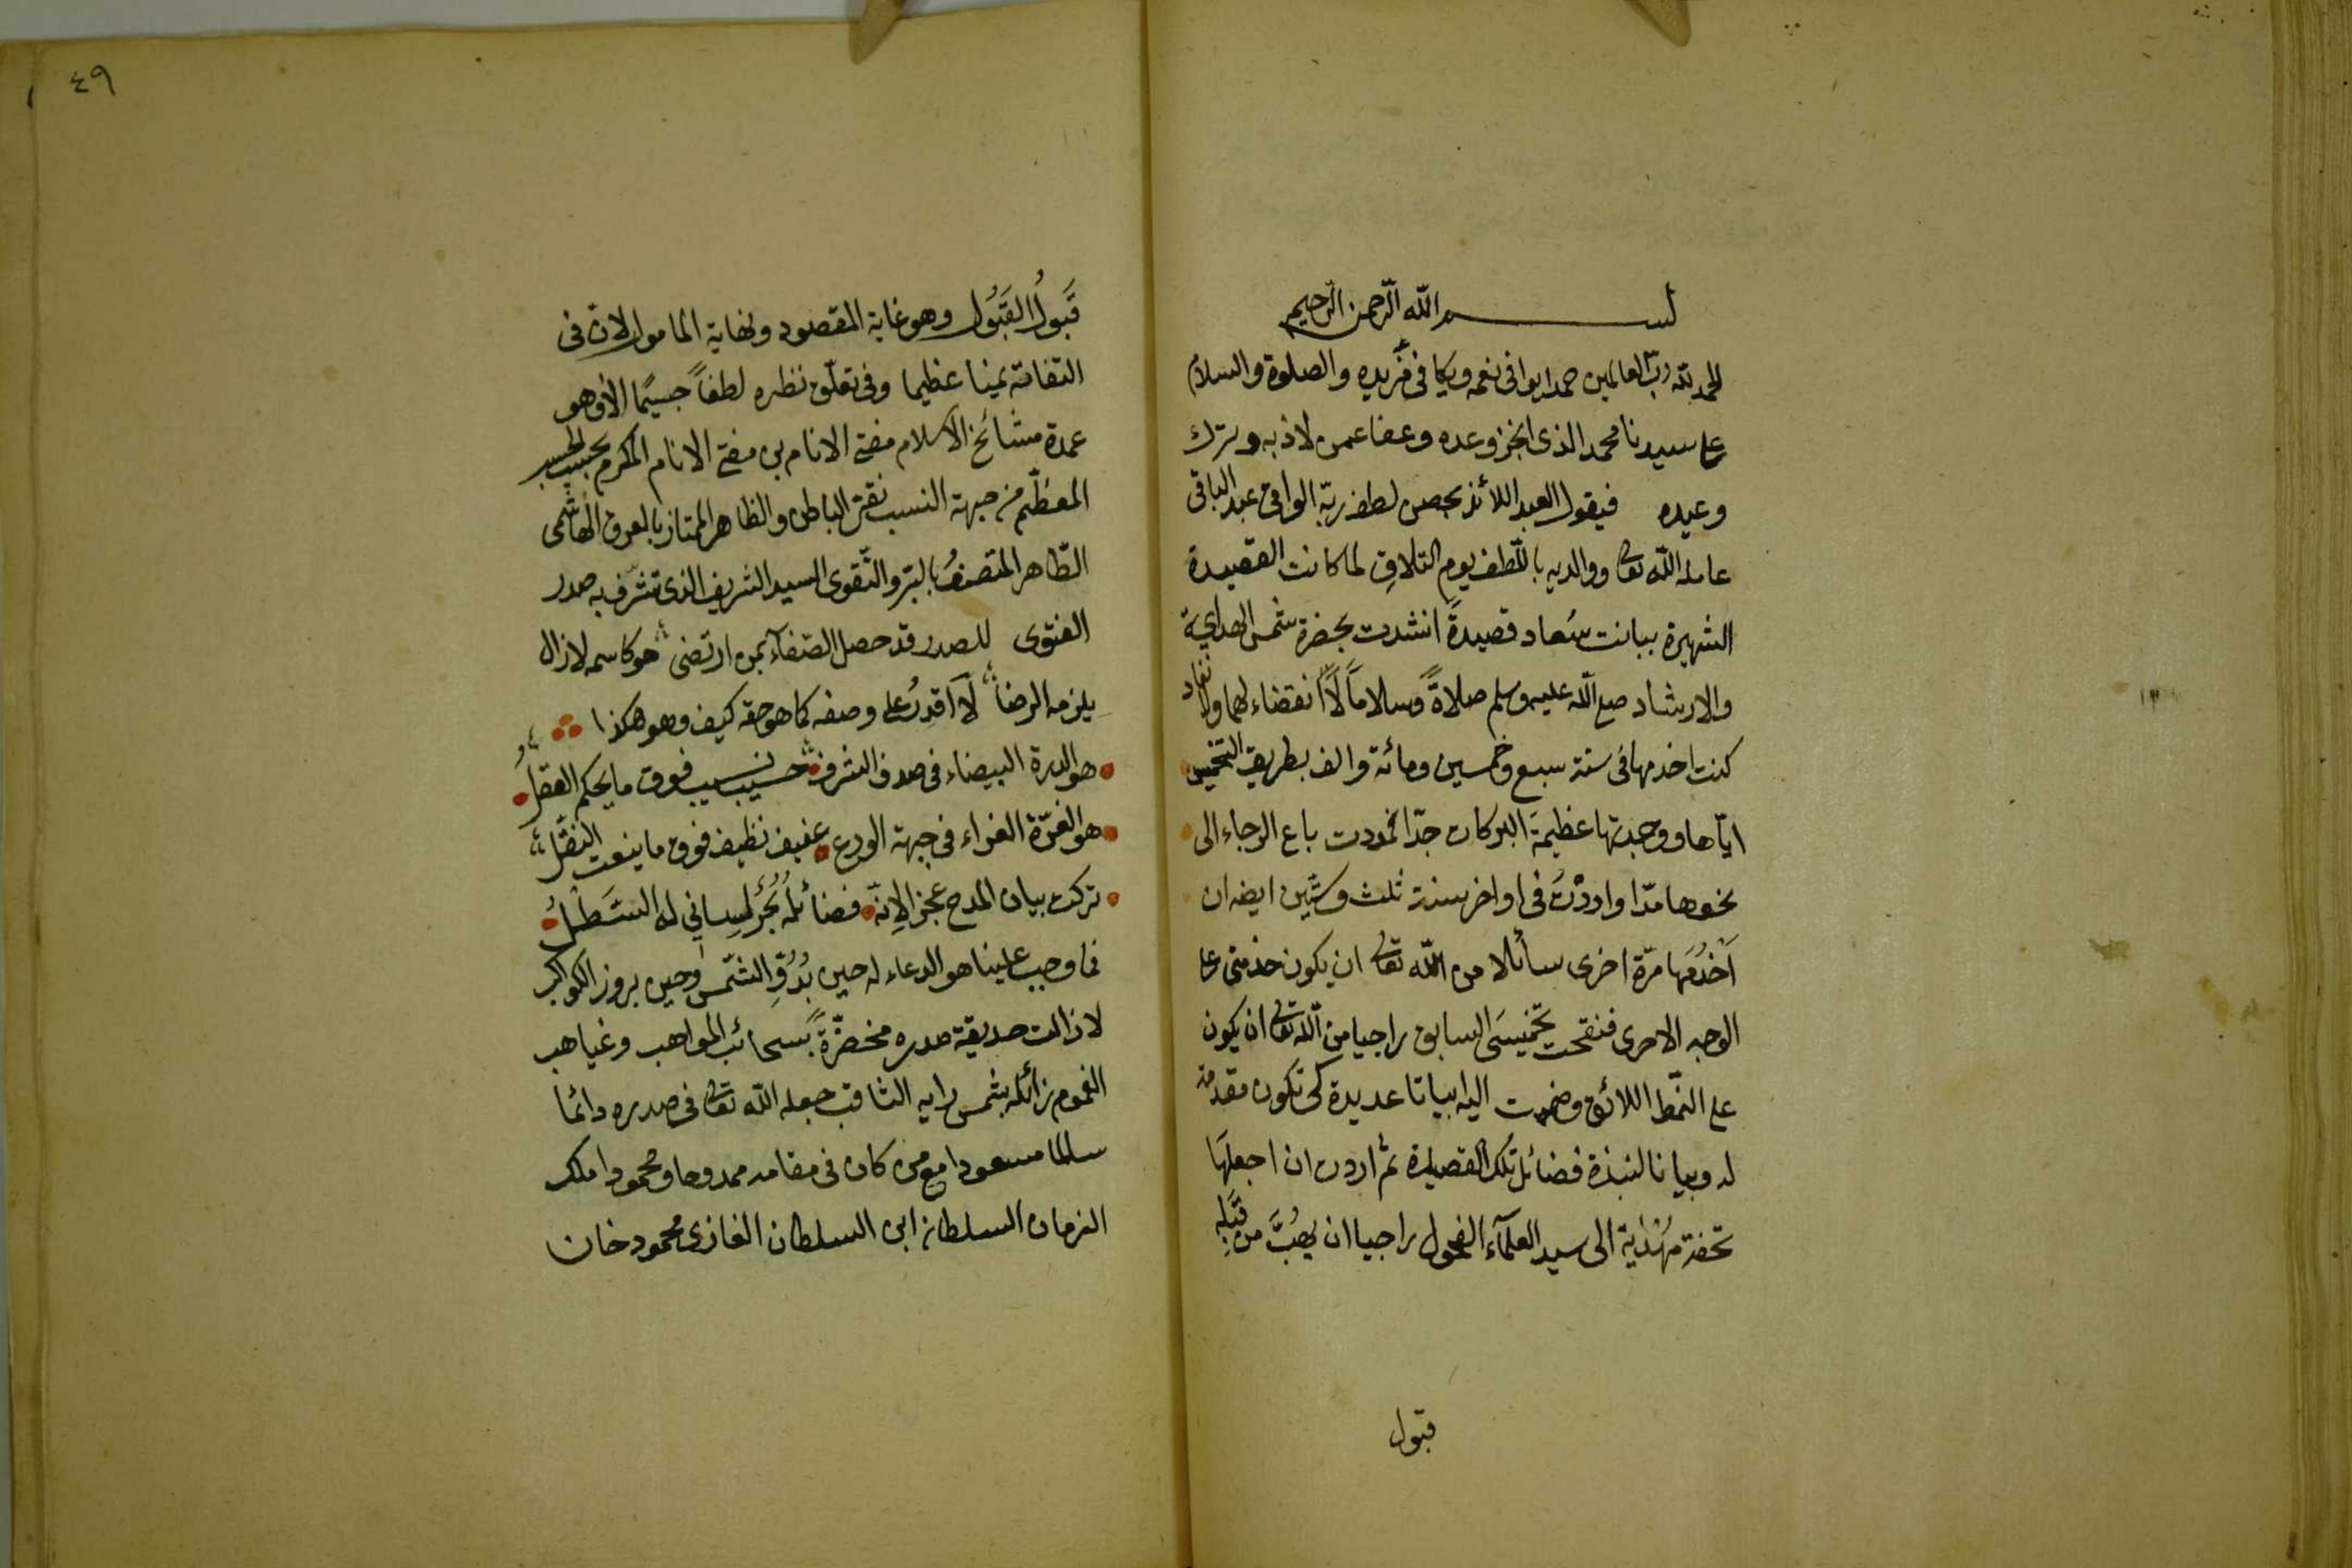 بسم الله الرحمن الرحيم
الحمد لله رب العالمين حمدا يوافى نعمه ويكافى مزيده والصلوة والسلام
على سيدنا محمد الذى انجز وعده وعفا عمن لاذ به وترك
وعيده فيقول العبد اللائذ بحصن لطف ربّه الواقى عبد الباقى
عامله الله تعالى ووالديه باللّطف يوم التلاقِ لما كانت القصيدة
الشهيرة ببانت سُعاد قصيدةً انشدت بحضرة شمس الهداية
والارشاد صلى الله عليه وسلم صلاةً وسلاماً لا انقضاء لهما ولا نفاد
كنت اخدمها فى سنة سبع وخمسين ومائة والف بطريق التخميس
ايّاها ووجدتها عظيمة البركات جدّا فمددت باع الرجاء الى
نحوها مدّا واردْتُ فى اواخر سنة ثلث وستّين ايضا ان
اَخْدُمَها مرّة اخرى سائلا من الله تعالى ان يكون خدمتى على
الوجه الاحرى فنقحت تخميسَى السابق راجيا من الله تعالى ان يكون
على النّمط اللائق وضممت اليه ابياتا عديدة كى تكون مقدمة
له وبيانا لنبذة فضائل تلك القصيدة ثم اردت ان اجعلَها
تحفة مُهْدَاية الى سيد العلمآء الفحول راجيا ان يهُبَّ من قِبَلِه
قبول
٤٩
قَبولُ القَبُول وهو غاية المقصود ونهاية المامول لانّ فى
التفاته يمينا عظيما وفى تعلّق نظره لطفاً جسيمًا الا وهو
عمدة مشائخ الاسلام مفتى الانام بن مفتى الانام المكرم بحسب الحسب
المعظّم من جهة النسب نقىّ الباطن والظاهر الممتاز بالعرق الهاشمى
الطّاهر المتصفُ بالبرّ والتّقوى السيد الشريف الذى تشرّف به صدر
الفتوى للصدر قد حصل الصفآء بمن ارتضى هو كاسمه لازال
يلزمه الرضا لَا اَقدِرُ على وصفه كما هو حقه كيف وهو هكذا
هو الدرة البيضاء فى صدف الشرف حسيب نسيب فوق ما يحكم العقلُ
هو الغرّة الغراء فى جبهة الورع عفيف نظيف فوق ما ينعت النقلُ
تركت بيان المدح عجزا لِانّه فضائلُه بَحْرٌ لِسانى له السَّطْلُ
فما وجب علينا هو الدعاء له حين بُدُوِّ الشّمس وحين بروز الكواكب
لا زالت حديقة صدره مخضرّةً بسحائب المواهب وغياهب
الغموم زائلة بشمس رايه الثاقب جعله الله تعالى فى صدره دائما
سالما مسعودا مع من كان فى مقامه ممدوحا ومحمودا ملك
الزمان السلطان ابن السلطان الغازى محمود خان